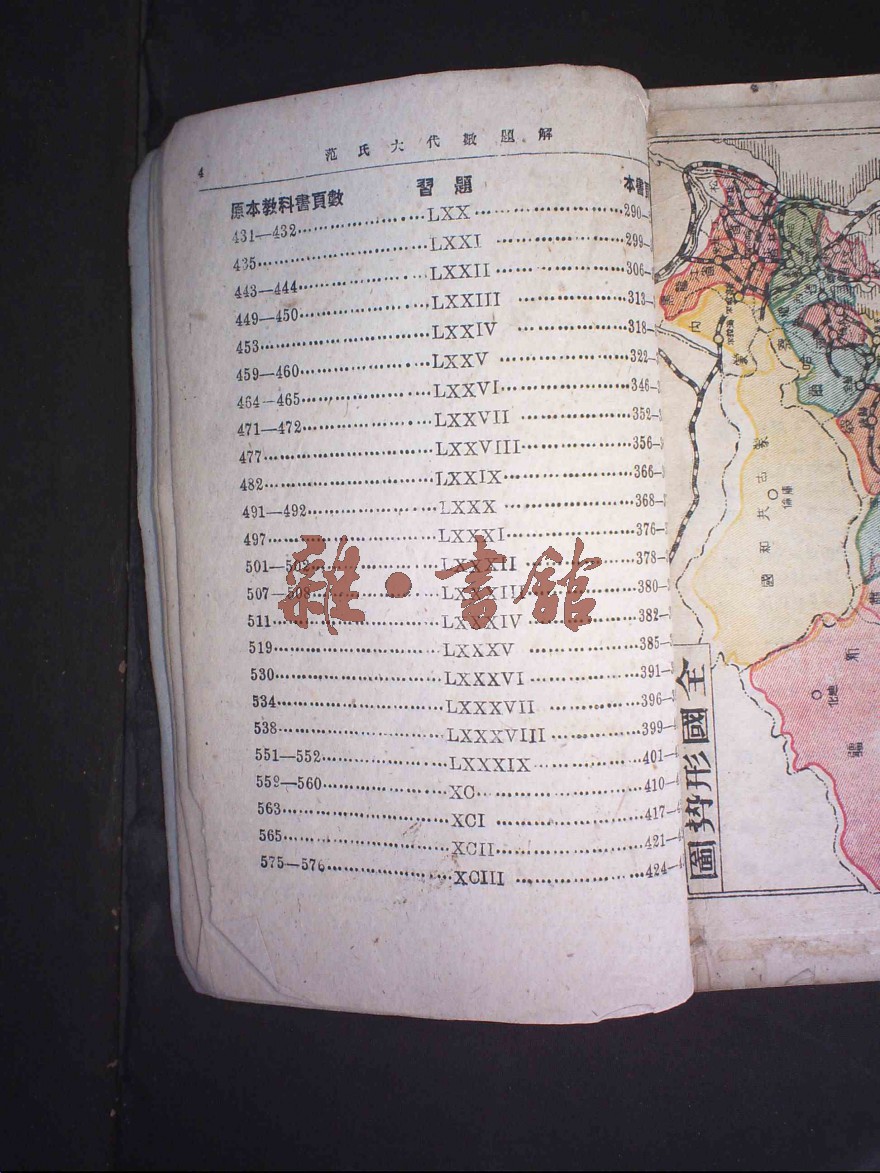 4 范氏大代數題解
原本教科書頁數 習題 本書頁
431—432 LXX 290—
435 LXXI 299—
443—444 LXXII 306—
449—450 LXXIII 313—
453 LXXIV 318—
459—460 LXXV 322—
464—465 LXXVI 346—
471—472 LXXVII 352—
477 LXXVIII 356—
482 LXXIX 366—
491—492 LXXX 368—
497 LXXXI 376—
501—502 LXXXII 378—
507—508 LXXXIII 380—
511 LXXXIV 382—
519 LXXXV 385—
530 LXXXVI 391—
534 LXXXVII 396—
538 LXXXVIII 399—
551—552 LXXXIX 401—
559—560 XC 410—
563 XCI 417—
565 XCII 421—
575—576 XCIII 424—
雜·書館
全國形勢圖
蒙古共和國
新疆
迪化
庫倫
內蒙